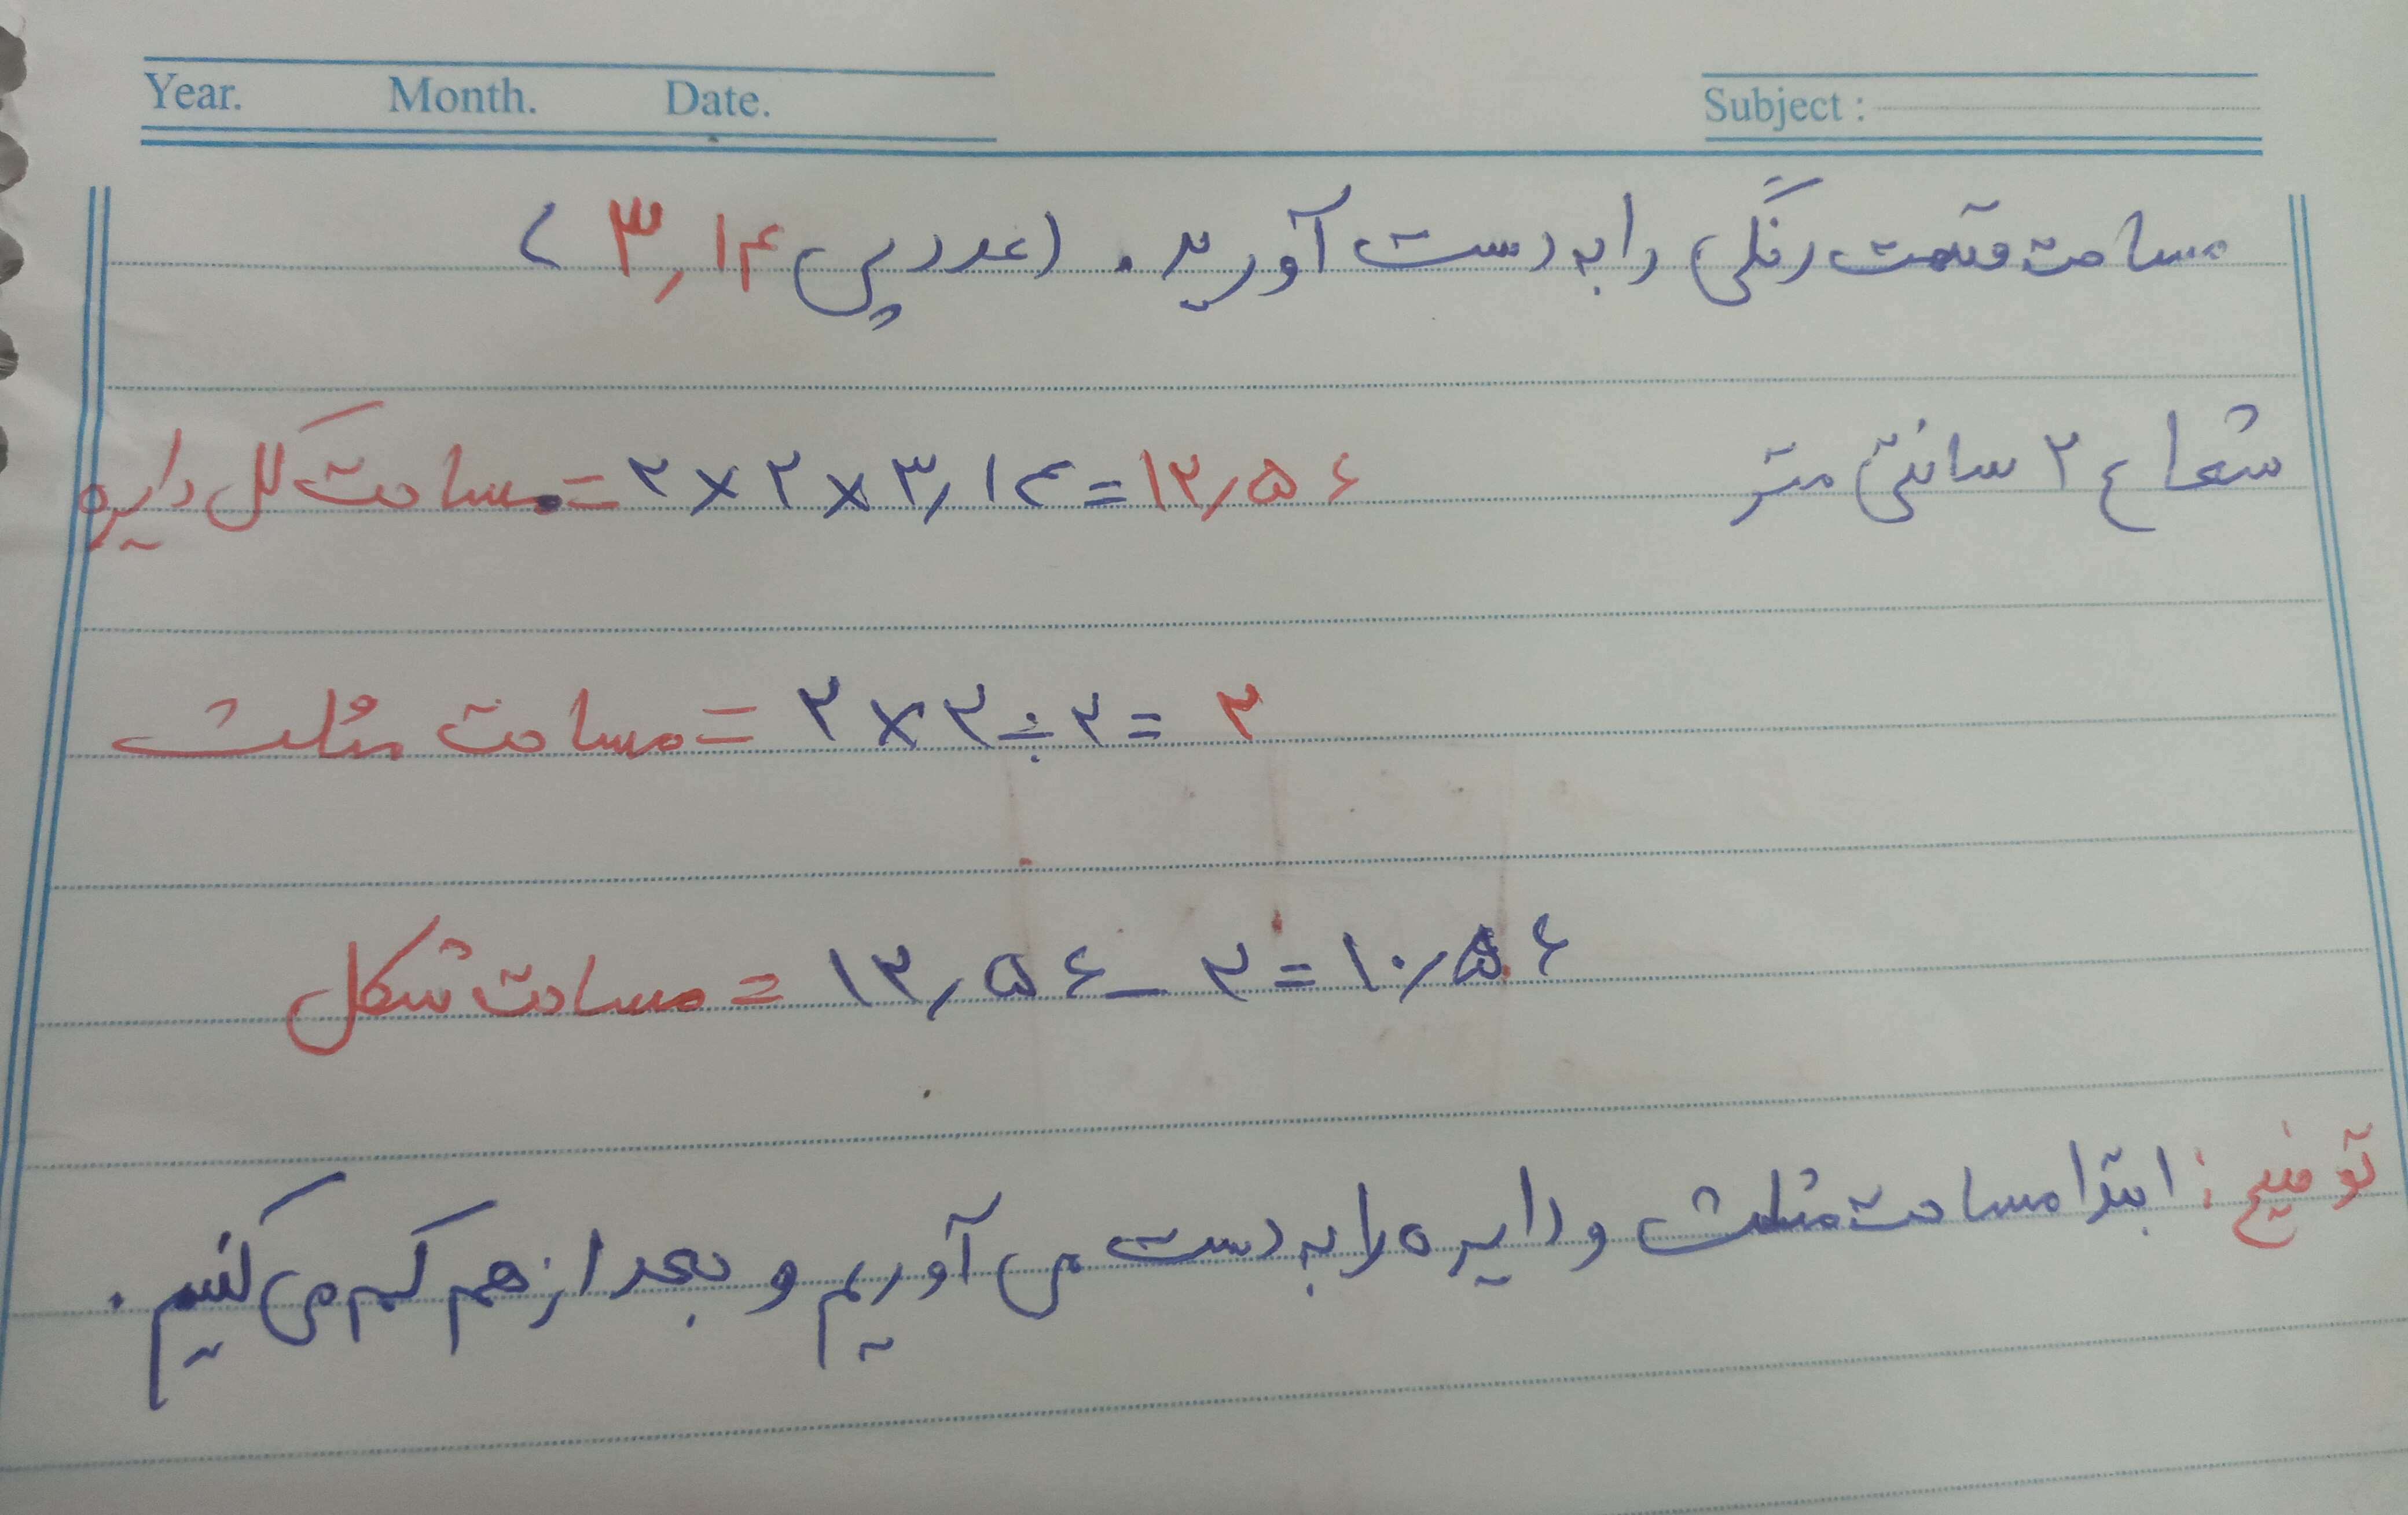 Year. Month. Date. Subject :
مساحت قسمت رنگی را به دست آورید. (عدد پی ۳٫۱۴)
شعاع ۲ سانتی متر
مساحت کل دایره = ۲ × ۲ × ۳٫۱۴ = ۱۲٫۵۶
مساحت مثلث = ۲ × ۲ ÷ ۲ = ۲
مساحت شکل = ۱۲٫۵۶ - ۲ = ۱۰٫۵۶
توضیح : ابتدا مساحت مثلث و دایره را به دست می آوریم و بعد از هم کم می کنیم.